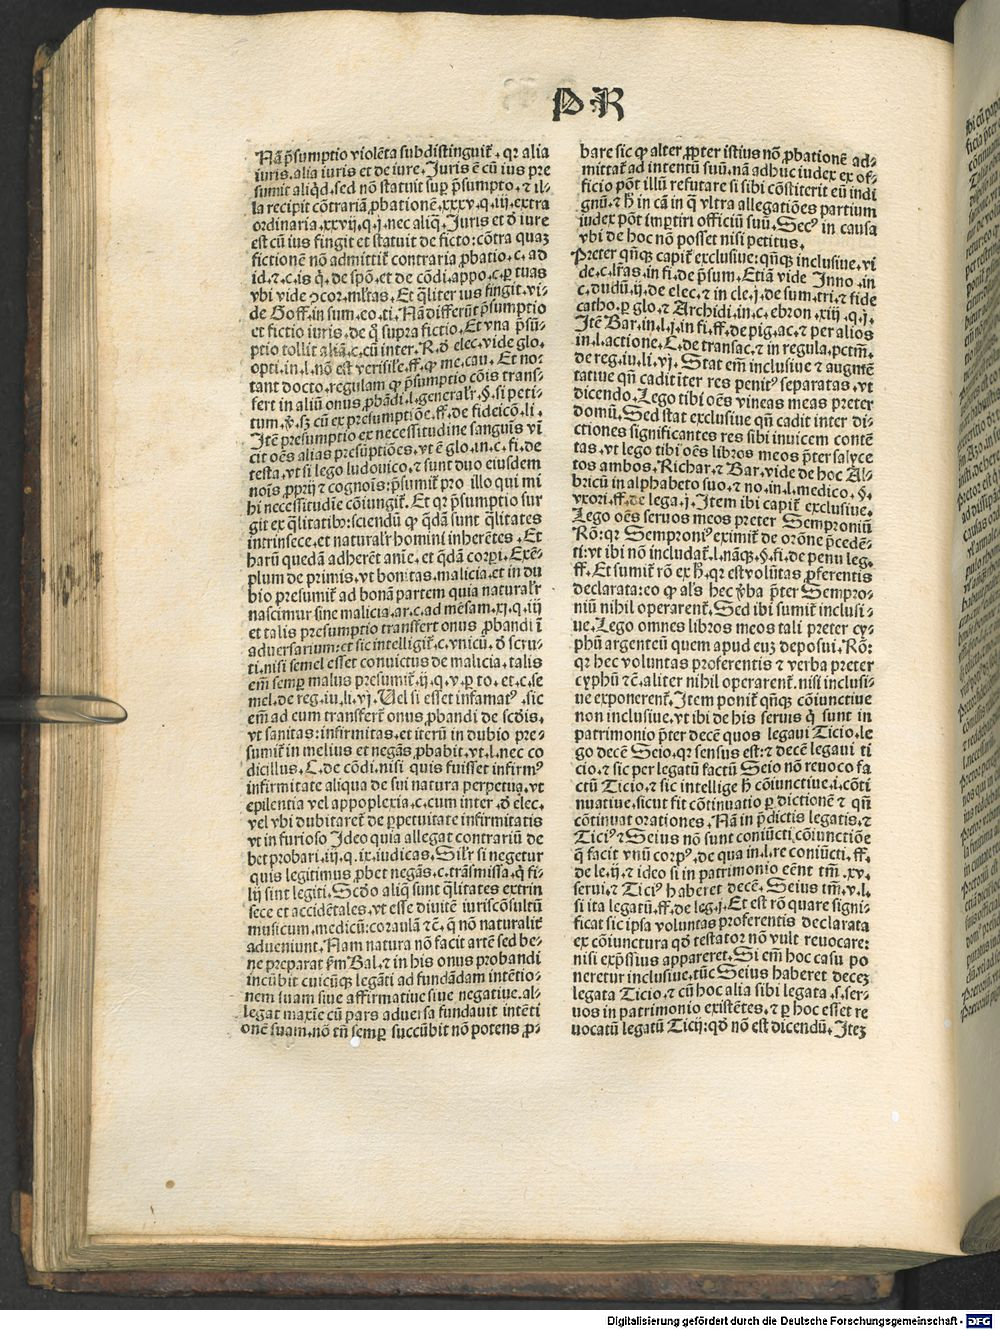 P R
Nā p̄sumptio violēta subdistinguit᷑. qꝛ alia
iuris. alia iuris et de iure. Juris ē cū ius pre
sumit aliqd. sed nō statuit suꝑ p̄sumpto. ⁊ il-
la recipit cōtrariā ꝓbationē. xxxv. q. iij. extra
ordinaria. xxvij. q. j. nec aliq̄. Juris et ď iure
est cū ius fingit et statuit de ficto: cōtra quaꝫ
fictionē nō admittit᷑ contraria ꝓbatio. c. ad
id. ⁊ c. is q̄. de spō. et de cōdi. appo. c. ꝑ tuas
vbi vide ꝯcor. mĺtas. Et q̄liter ius fingit. vi-
de Goff. in sum. eo. ti. Nā differūt p̄sumptio
et fictio iuris. de q̄ supra fictio. Et vna p̄sū-
ptio tollit aliā. c. cū inter. R. ď elec. vide glo.
opti. in. l. nō est verisiĺe. ff. ꝙ me. cau. Et no-
tant docto. regulam ꝙ p̄sumptio cōis trans-
fert in aliū onus ꝓbādi. l. generaĺr. §. si peti-
tum. ꝟ. sꝫ cū ex presumptiōe. ff. de fideicō. li.
Itē presumptio ex necessitudine sanguīs vī
cit oēs alias presūptiōes. vt ē glo. in. c. fi. de
testa. vt si lego ludouico. ⁊ sunt duo eiusdem
nois ꝓprij ⁊ cognois: p̄sumit᷑ pro illo qui mi
hi necessitudīe cōiungit᷑. Et qꝛ p̄sumptio sur
git ex q̄litatibꝰ: sciendū ꝙ q̄dā sunt q̄litates
intrinsece. et naturaĺr homini inherētes. Et
harū quedā adherēt aīe. et q̄dā corꝑi. Exē-
plum de primis. vt bonitas. malicia. et in du
bio presumit᷑ ad bonā partem quia naturaĺr
nascimur sine malicia. ar. c. ad mēsam. xj. q. iij
et talis presumptio transfert onus ꝓbandi ī
aduersarium: et sic intelligit᷑. c. vnicū. ď scru-
ti. nisi semel esset conuictus de malicia. talis
em̄ semꝑ malus presumit᷑. ij. q. v. ꝑ to. et. c. se
mel. de reg. iu. li. vj. Uel si esset infamatꝰ. sic
em̄ ad eum transfert᷑ onus ꝓbandi de scďis.
vt sanitas: infirmitas. et iterū in dubio pre-
sumit᷑ in melius et negās ꝓbabit. vt. l. nec co
dicillus. C. de cōdi. nisi quis fuisset infirmꝰ
infirmitate aliqua de sui natura perpetua. vt
epilentia vel appoplexia. c. cum inter. ď elec.
vel vbi dubitaret᷑ de ꝑpetuitate infirmitatis
vt in furioso Ideo quia allegat contrariū de
bet probari. iij. q. ix. iudicas. Siĺr si negetur
quis legitimus ꝓbet negās. c. trāsmissa. q̄ fi-
lij sint legiti. Scďo aliq̄ sunt q̄litates extrin
sece et accidētales. vt esse diuitē iuriscōsultū
musicum. medicū: coraulā ⁊c̄. q̄ nō naturalit᷑
adueniunt. Nam natura nō facit artē sed be-
ne preparat ẜm Bal. ⁊ in his onus probandi
incūbit cuicūqꝫ legāti ad fundādam intētio-
nem suam siue affirmatiue siue negatiue. al-
legat maxīe cū pars aduersa fundauit intēti
onē suam. nō tn̄ semꝑ succūbit nō potens ꝓ-
bare sic ꝙ alter ꝓpter istius nō ꝓbationē ad-
mittat᷑ ad intentū suū. nā adhuc iudex ex of-
ficio pōt illū refutare si sibi cōstiterit eū indi
gnū. ⁊ h̄ in cā in q̄ vltra allegatiōes partium
iudex pōt imꝑtiri officiū suū. Secꝰ in causa
vbi de hoc nō posset nisi petitus.
Preter qn̄qꝫ capit᷑ exclusiue: qn̄qꝫ inclusiue. vi
de. c. lr̄as. in fi. de p̄sum. Etiā vide Inno. in
c. dudū. ij. de elec. ⁊ in cle. j. de sum. tri. ⁊ fide
catho. ꝑ glo. ⁊ Archidi. in. c. ebron. xiij. q. j.
Itē Bar. in. l. j. in fi. ff. de pig. ac. ⁊ per alios
in. l. actione. C. de transac. ⁊ in regula. pctm̄.
de reg. iu. li. vj. Stat em̄ inclusiue ⁊ augmē
tatiue qn̄ cadit īter res penitꝰ separatas. vt
dicendo. Lego tibi oēs vineas meas preter
domū. Sed stat exclusiue qn̄ cadit inter di-
ctiones significantes res sibi inuicem contē
tas. vt lego tibi oēs libros meos p̄ter salyce
tos ambos. Richar. ⁊ Bar. vide de hoc Al-
bricū in alphabeto suo. ⁊ no. in. l. medico. §.
vxori. ff. de lega. j. Item ibi capit᷑ exclusiue.
Lego oēs seruos meos preter Semproniū
Rō: qꝛ Semproniꝰ eximit᷑ de orōne p̄cedē-
ti: vt ibi nō includat᷑. l. nāqꝫ. §. fi. de penu leg.
ff. Et sumit᷑ rō ex h̄. qꝛ est volūtas ꝓferentis
declarata: eo ꝙ aĺs hec ꝟba p̄ter Sempro-
niū nihil operarent᷑. Sed ibi sumit᷑ inclusi-
ue. Lego omnes libros meos tali preter cy-
phū argenteū quem apud euꝫ deposui. Rō:
qꝛ hec voluntas proferentis ⁊ verba preter
cyphū ⁊c̄. aliter nihil operarent᷑. nisi inclusi-
ue exponerent᷑. Item ponit᷑ qn̄qꝫ cōiunctiue
non inclusiue. vt ibi de his seruis q̄ sunt in
patrimonio p̄ter decē quos legaui Ticio. le
go decē Seio. qꝛ sensus est: ⁊ decē legaui ti
cio. ⁊ sic per legatū factū Seio nō reuoco fa
ctū Ticio. ⁊ sic intellige h̄ cōiunctiue. i. cōti
nuatiue. sicut fit cōtinuatio ꝑ dictionē ⁊ qn̄
cōtinuat orationes. Nā in p̄dictis legatis. ⁊
Ticiꝰ ⁊ Seius nō sunt coniūcti cōiunctiōe
q̄ facit vnū corpꝰ. de qua in. l. re coniūcti. ff.
de le. ij. ⁊ ideo si in patrimonio eēnt tm̄. xv.
serui. ⁊ Ticiꝰ haberet decē. Seius tm̄. v. l.
si ita legatū. ff. de leg. j. Et est rō quare signi-
ficat sic ipsa voluntas proferentis declarata
ex cōiunctura qď testator nō vult reuocare:
nisi exp̄ssius appareret. Si em̄ hoc casu po
neretur inclusiue. tūc Seius haberet deceꝫ
legata Ticio. ⁊ cū hoc alia sibi legata. s. ser-
uos in patrimonio existētes. ⁊ ꝑ hoc esset re
uocatū legatū Ticij: qď nō est dicendū. Iteꝫ
Digitalisierung gefördert durch die Deutsche Forschungsgemeinschaft - DFG